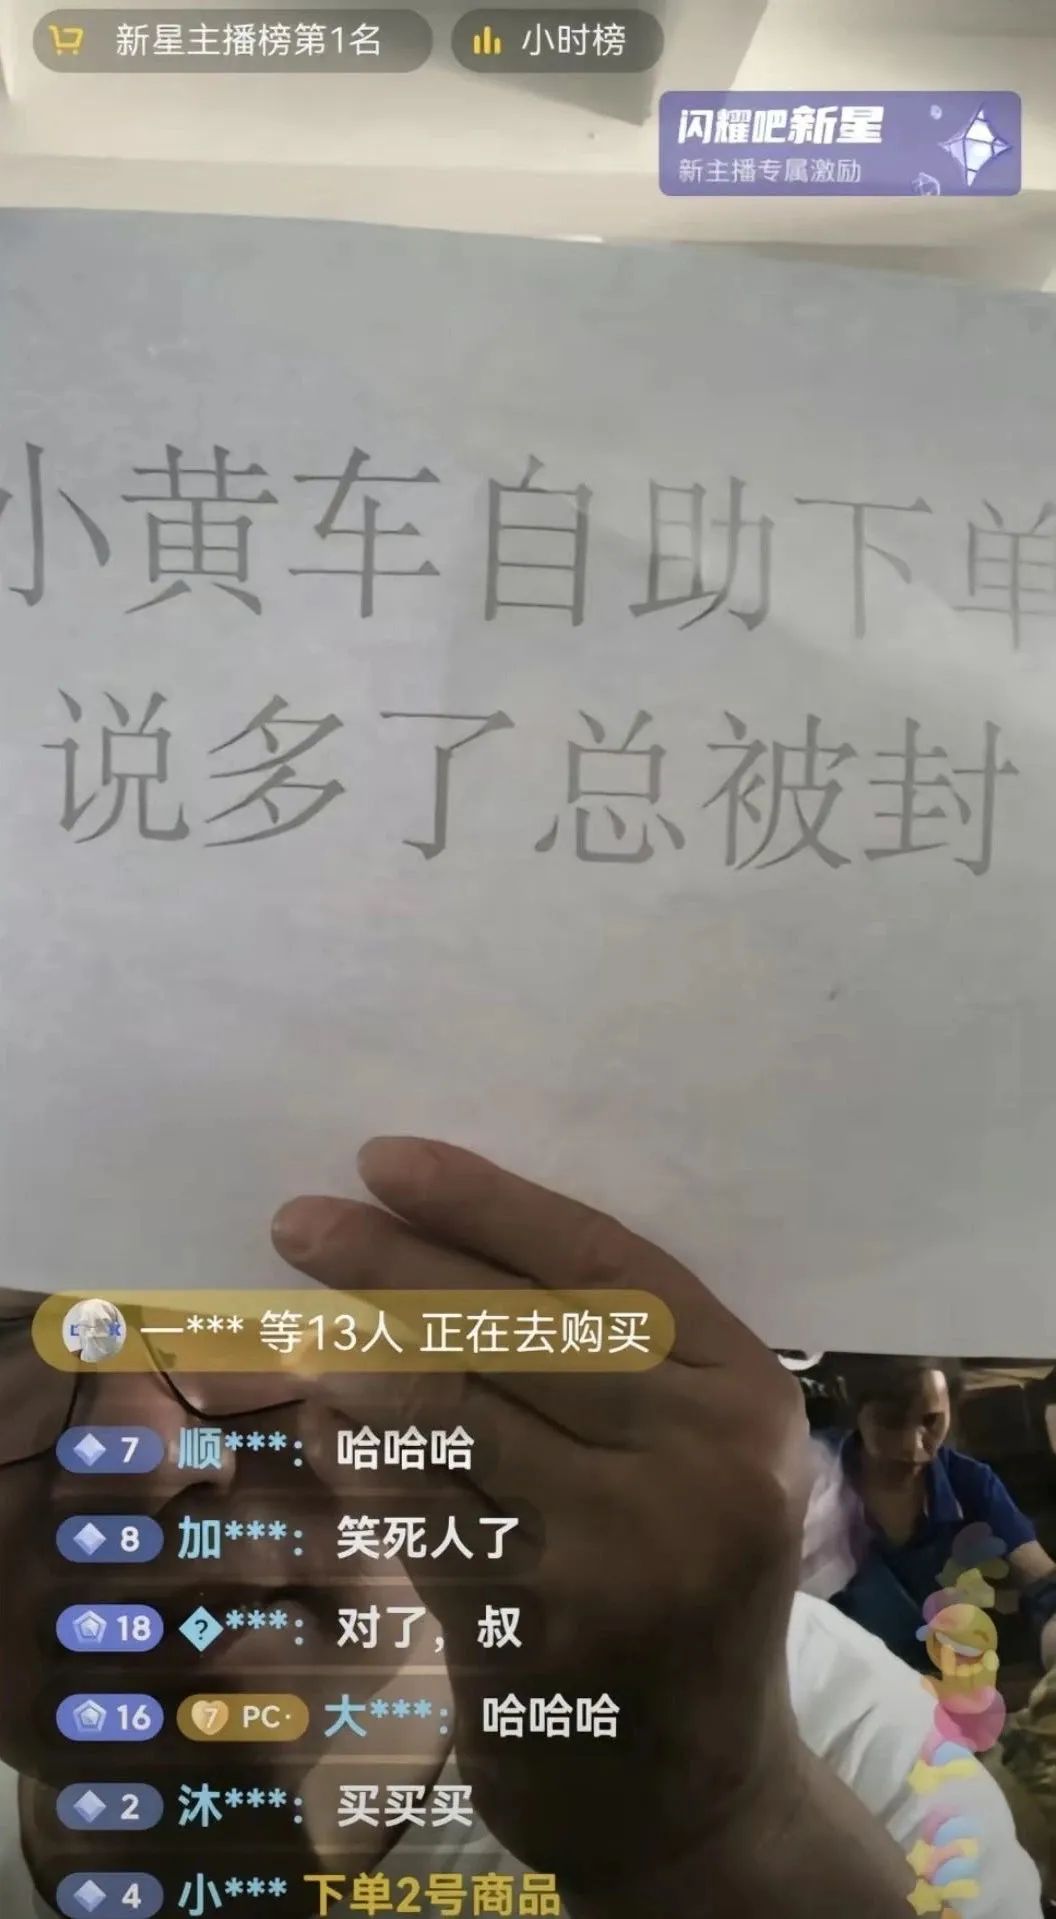 新星主播榜第1名
小时榜
闪耀吧新星
新主播专属激励
小黄车自助下单
说多了总被封
一*** 等13人 正在去购买
7 顺***： 哈哈哈
8 加***： 笑死人了
18 �***： 对了，叔
16 7 PC· 大***： 哈哈哈
2 沐***： 买买买
4 小*** 下单2号商品